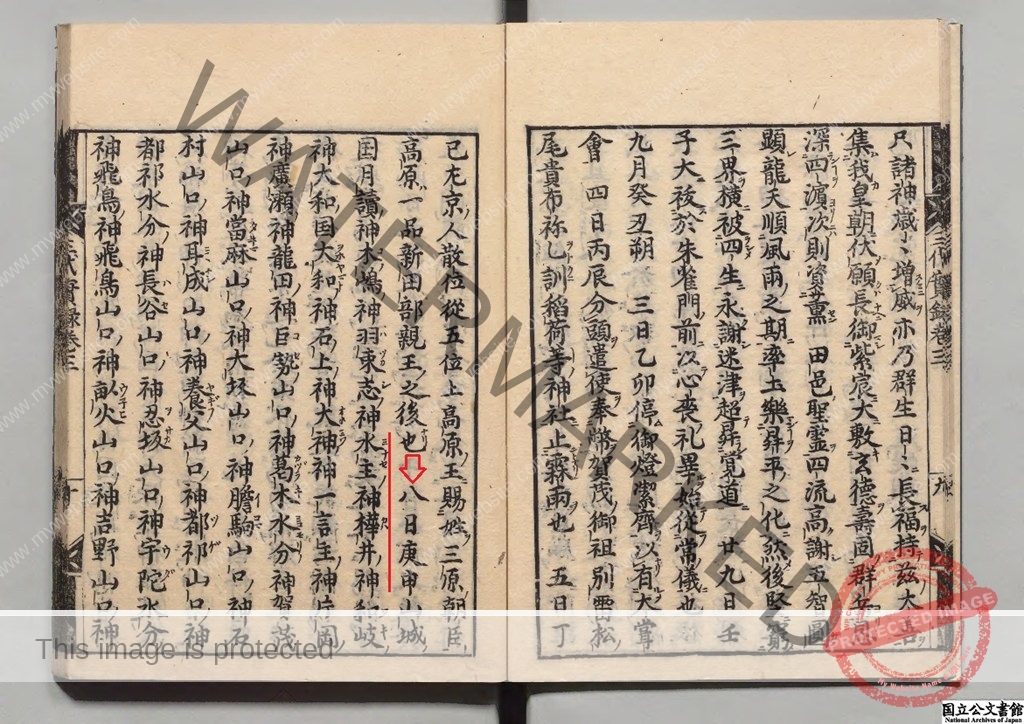 尺諸神熾〻増威亦乃群生日〻長福持茲大善
集我皇朝伏願長御紫宸大敷玄德壽固群
深四濵次則資薫 田邑聖霊四流高謝五智圓
顕龍天順風雨之期率土樂昇平之化然後堅
三界横被四生永謝迷津超昇覚道 廿九日壬
子大祓於朱雀門前以心喪礼畢始從常儀也
九月癸丑朔 三日乙卯停御燈紫齊以有大甞
會 四日丙辰分頭遣使奉幣賀茂御祖別雷松
尾貴布祢乙訓稲荷等神社止霖雨也 五日丁
巳左京人散位從五位上高原王賜姓三原朝臣
高原一品新田部親王之後也 八日庚申山城
国月讀神木嶋神羽束志神水主神樺井神和岐
神大和国大和神石上神大神神一言主神片岡
神廣瀬神龍田神巨勢山口神葛木水分神賀茂
山口神當麻山口神大坂山口神膽駒山口神石
村山口神耳成山口神養父山口神都祁山口神
都祁水分神長谷山口神忍坂山口神宇陀水分
神飛鳥神飛鳥山口神畝火山口神吉野山口神
三代實録巻三
九
三代實録巻三
十
WATERMARKED
This image is protected
PROTECTED IMAGE
www.mywebsite.com
国立公文書館
National Archives of Japan